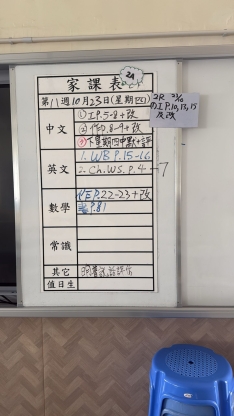 家課表
2A
第11週10月23日(星期四)
中文
①工P.5-8+改
②作P.8-9+改
③下星期四中默+評
英文
1. WB P.15-16
2. Ch.WS. P.4 - 7
數學
作P.22-23+改
P.81
常識
其它
值日生
2R 22/10
中工P.10,13,15
及改